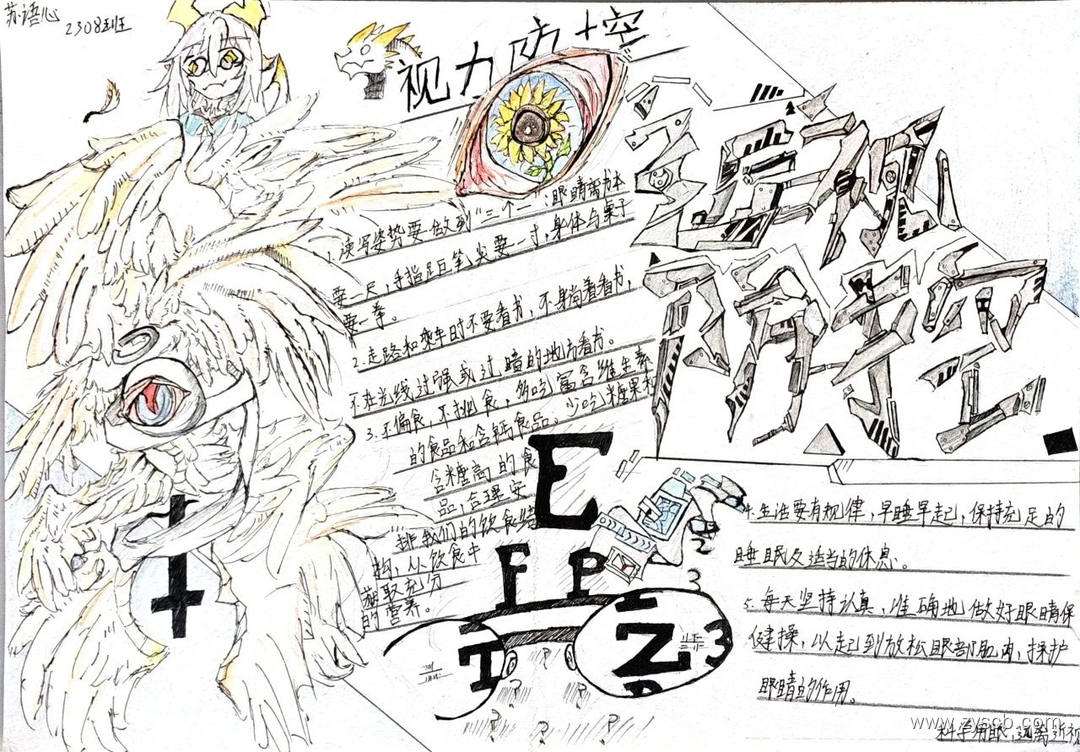 苏语心
2308班
视力防控
近视
防控
1.读写姿势要做到"三个一":眼睛离书本
要一尺,手指距笔尖要一寸,身体与桌子
要一拳。
2.走路和乘车时不要看书,不躺着看书,
不在光线过强或过暗的地方看书。
3.不偏食,不挑食,多吃富含维生素
的食品和含钙食品。少吃糖果和
含糖高的食
品,合理安
排我们的饮食结
构,从饮食中
摄取充分
的营养。
E
F P
2
3
Z
3
4.生活要有规律,早睡早起,保持充足的
睡眠及适当的休息。
5.每天坚持认真,准确地做好眼睛保
健操,以起到放松眼部肌肉,保护
眼睛的作用。
科学用眼,远离近视